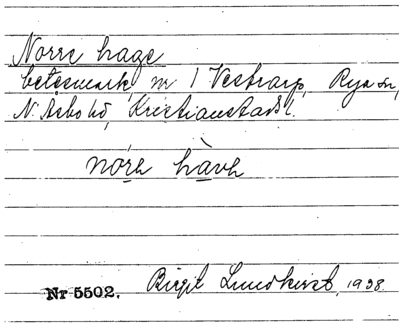 Norre hage
betesmark, nr 1 Vestrarp, Rya sn,
N. Åsbo hd, Kristianstads l.
nórə hàvə
Nr 5502. Birgit Lundkvist, 1938.